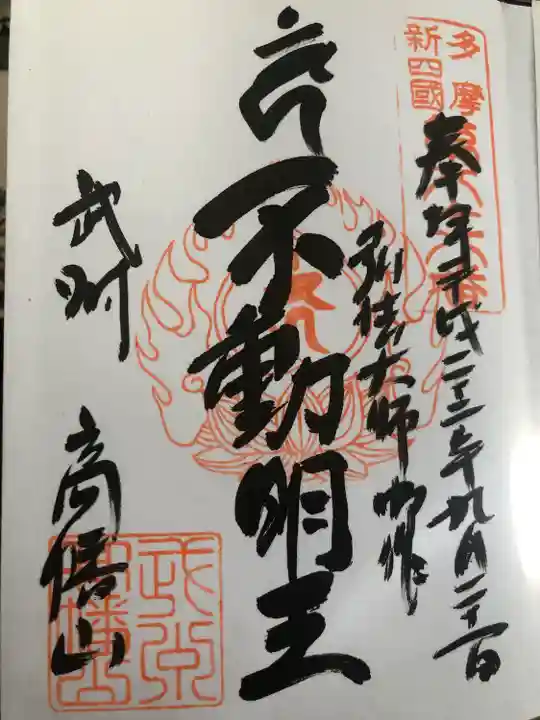 多摩
新四國
奉拝 平成二十二年九月二十一日
弘法大師御作
不動明王
武州 高幡山